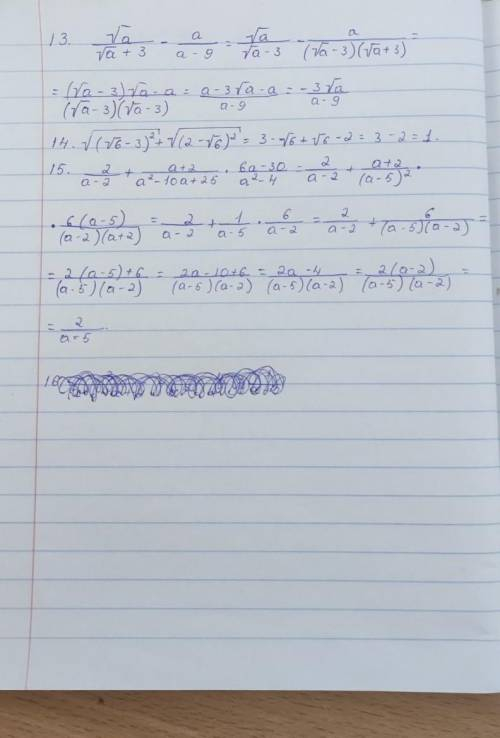 13. √a/(√a + 3) - a/(a - 9) = √a/(√a - 3) - a/((√a - 3)(√a + 3)) =
= ((√a - 3)√a - a)/((√a - 3)(√a - 3)) = (a - 3√a - a)/(a - 9) = (-3√a)/(a - 9)
14. √((√6 - 3)²) + √((2 - √6)²) = 3 - √6 + √6 - 2 = 3 - 2 = 1.
15. 2/(a - 2) + (a + 2)/(a² - 10a + 25) · (6a - 30)/(a² - 4) = 2/(a - 2) + (a + 2)/(a - 5)² ·
· 6(a - 5)/((a - 2)(a + 2)) = 2/(a - 2) + 1/(a - 5) · 6/(a - 2) = 2/(a - 2) + 6/((a - 5)(a - 2)) =
= (2(a - 5) + 6)/((a - 5)(a - 2)) = (2a - 10 + 6)/((a - 5)(a - 2)) = (2a - 4)/((a - 5)(a - 2)) = 2(a - 2)/((a - 5)(a - 2)) =
= 2/(a - 5).
16